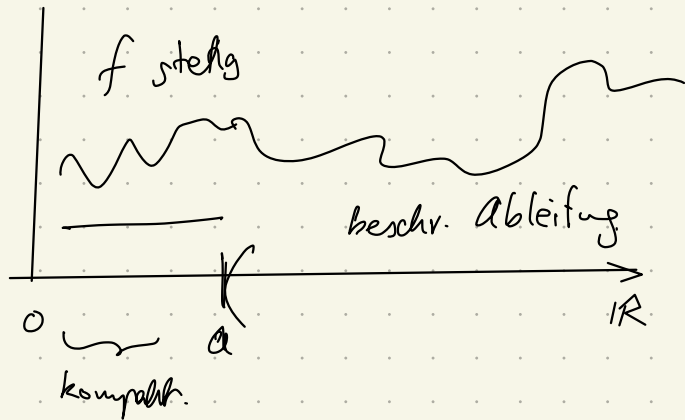 f stetig
beschr. Ableitung
0
a
IR
kompakt.